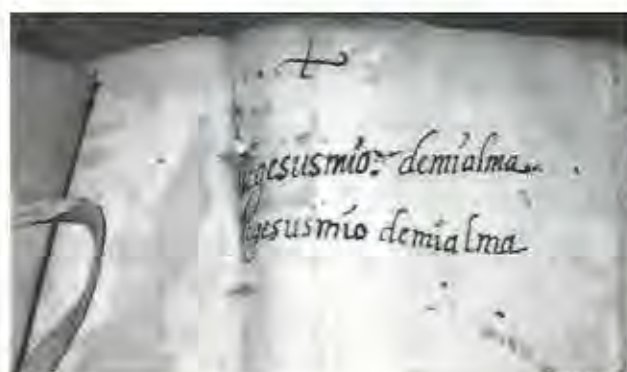 gesusmío. demíalma
gesusmío demíalma